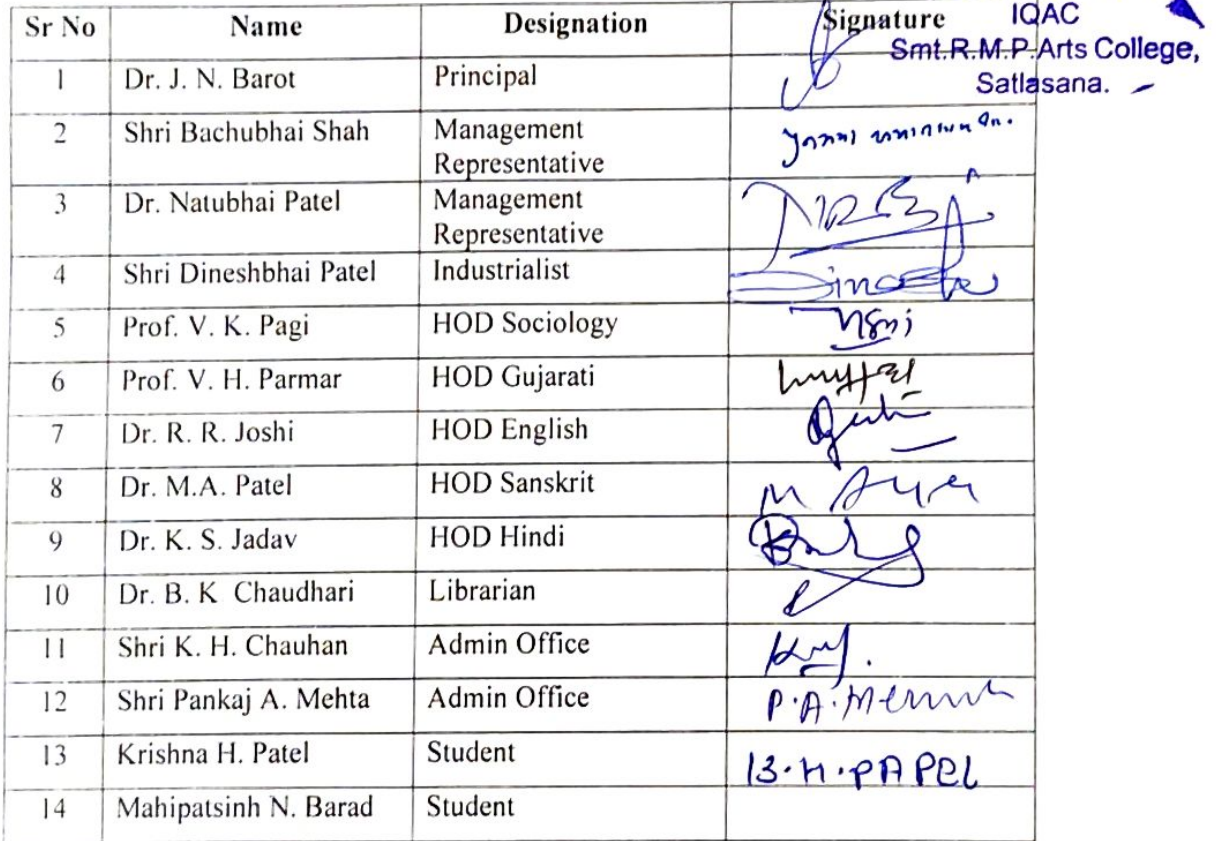 Sr No Name Designation Signature IQAC
Smt.R.M.P.Arts College,
Satlasana.
1 Dr. J. N. Barot Principal
2 Shri Bachubhai Shah Management
Representative
3 Dr. Natubhai Patel Management
Representative
4 Shri Dineshbhai Patel Industrialist
5 Prof. V. K. Pagi HOD Sociology
6 Prof. V. H. Parmar HOD Gujarati
7 Dr. R. R. Joshi HOD English
8 Dr. M.A. Patel HOD Sanskrit
9 Dr. K. S. Jadav HOD Hindi
10 Dr. B. K Chaudhari Librarian
11 Shri K. H. Chauhan Admin Office
12 Shri Pankaj A. Mehta Admin Office P.A.
13 Krishna H. Patel Student 13.H.PAPEL
14 Mahipatsinh N. Barad Student